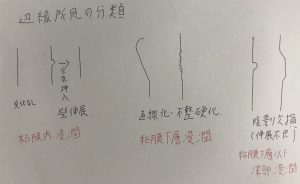 辺縁所見の分類
変化なし
空気挿入
壁伸展
粘膜内浸潤
直線化・不整硬化
粘膜下層浸潤
陰影欠損
(伸展不良)
粘膜下層以下
深部浸潤